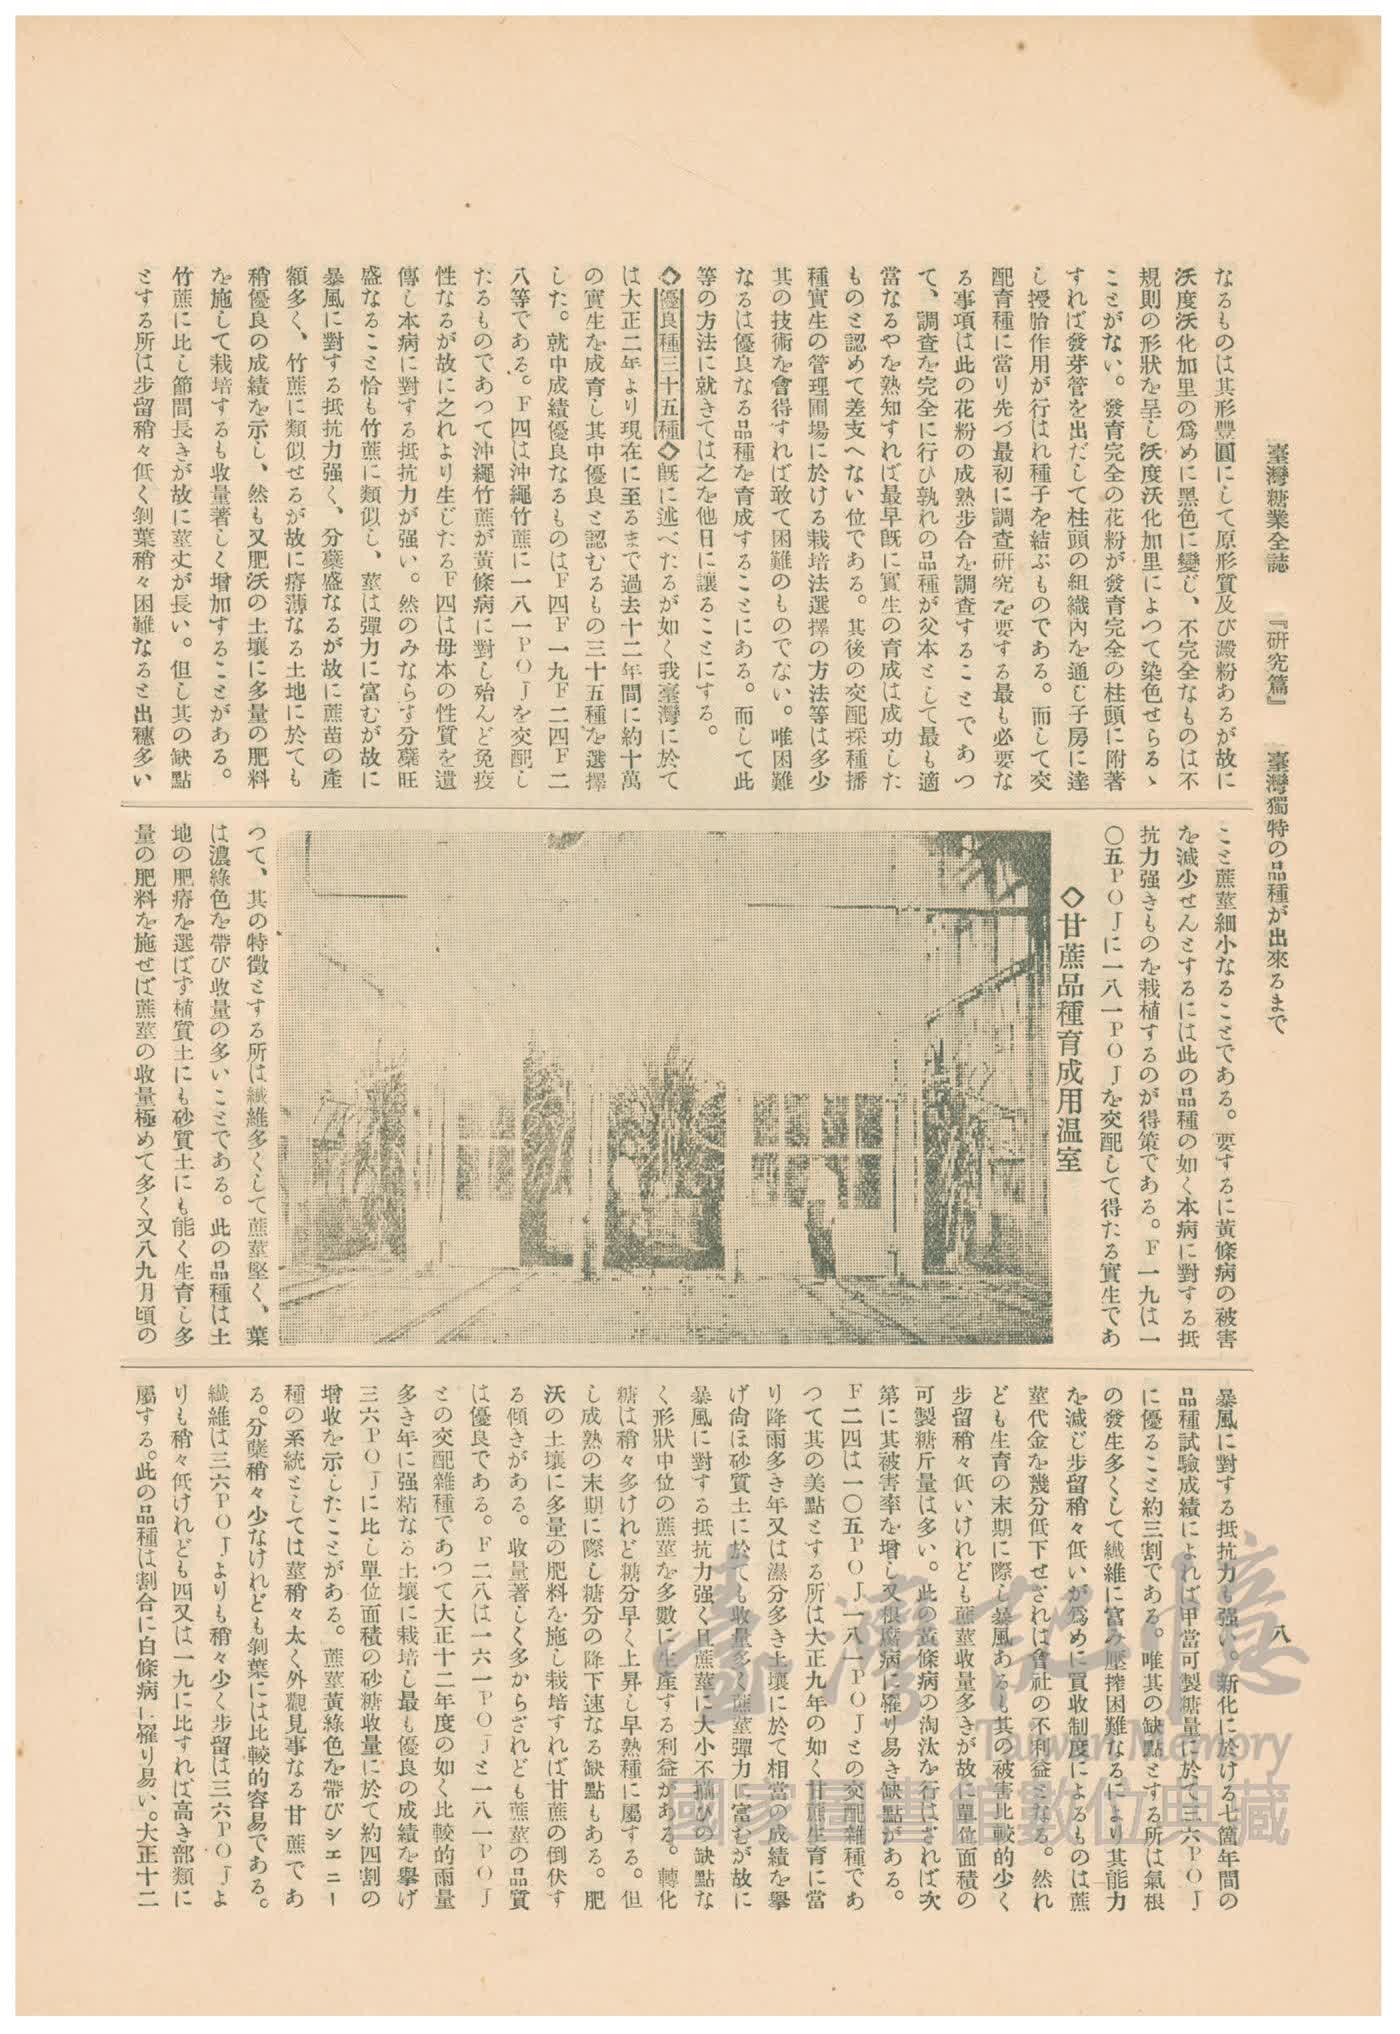 臺灣糖業全誌 『研究篇』 臺灣獨特の品種が出來るまで
八
なるものは其形豐圓にして原形質及び澱粉あるが故に
沃度沃化加里の爲めに黑色に變じ、不完全なものは不
規則の形狀を呈し沃度沃化加里によつて染色せらるゝ
ことがない。發育完全の花粉が發育完全の柱頭に附著
すれば發芽管を出だして柱頭の組織內を通じ子房に達
し授胎作用が行はれ種子を結ぶものである。而して交
配育種に當り先づ最初に調查硏究を要する最も必要な
る事項は此の花粉の成熟步合を調查することであつ
て、調查を完全に行ひ孰れの品種が父本として最も適
當なるやを熟知すれば最早旣に實生の育成は成功した
ものと認めて差支へない位である。其後の交配採種播
種實生の管理圃場に於ける栽培法選擇の方法等は多少
其の技術を會得すれば敢て困難のものでない。唯困難
なるは優良なる品種を育成することにある。而して此
等の方法に就きては之を他日に讓ることにする。
◇優良種三十五種◇旣に述べたるが如く我臺灣に於て
は大正二年より現在に至るまで過去十二年間に約十萬
の實生を成育し其中優良と認むるもの三十五種を選擇
した。就中成績優良なるものはF四F一九F二四F二
八等である。F四は沖繩竹蔗に一八一POJを交配し
たるものであつて沖繩竹蔗が黃條病に對し殆んど免疫
性なるが故に之れより生じたるF四は母本の性質を遺
傳し本病に對する抵抗力が强い。然のみならず分蘖旺
盛なること恰も竹蔗に類似し、莖は彈力に富むが故に
暴風に對する抵抗力强く、分蘖盛なるが故に蔗苗の產
額多く、竹蔗に類似せるが故に瘠薄なる土地に於ても
稍優良の成績を示し、然も又肥沃の土壤に多量の肥料
を施して栽培するも收量著しく增加することがある。
竹蔗に比し節間長きが故に莖丈が長い。但し其の缺點
とする所は步留稍々低く剝葉稍々困難なると出穗多い
こと蔗莖細小なることである。要するに黃條病の被害
を減少せんとするには此の品種の如く本病に對する抵
抗力强きものを栽植するのが得策である。F一九は一
〇五POJに一八一POJを交配して得たる實生であ
◇甘蔗品種育成用溫室
つて、其の特徵とする所は纖維多くして蔗莖堅く、葉
は濃綠色を帶び收量の多いことである。此の品種は土
地の肥瘠を選ばず植質土にも砂質土にも能く生育し多
量の肥料を施せば蔗莖の收量極めて多く又八九月頃の
暴風に對する抵抗力も强い。新化に於ける七箇年間の
品種試驗成績によれば甲當可製糖量に於て三六POJ
に優ること約三割である。唯其の缺點とする所は氣根
の發生多くして纖維に富み壓搾困難なるにより其能力
を減じ步留稍々低いが爲めに買收制度によるものは蔗
莖代金を幾分低下せざれは會社の不利益となる。然れ
ども生育の末期に際し暴風あるも其の被害比較的少く
步留稍々低いけれども蔗莖收量多きが故に單位面積の
可製糖斤量は多い。此の黃條病の淘汰を行はざれば次
第に其被害率を增し又根腐病に罹り易き缺點がある。
F二四は一〇五POJ一八一POJとの交配雜種であ
つて其の美點とする所は大正九年の如く甘蔗生育に當
り降雨多き年又は濕分多き土壤に於て相當の成績を擧
げ尙ほ砂質土に於ても收量多く蔗莖彈力に富むが故に
暴風に對する抵抗力强く且蔗莖に大小不揃ひの缺點な
く形狀中位の蔗莖を多數に生產する利益がある。轉化
糖は稍々多けれど糖分早く上昇し早熟種に屬する。但
し成熟の末期に際し糖分の降下速なる缺點もある。肥
沃の土壤に多量の肥料を施し栽培すれば甘蔗の倒伏す
る傾きがある。收量著しく多からざれども蔗莖の品質
は優良である。F二八は一六一POJと一八一POJ
との交配雜種であつて大正十二年度の如く比較的雨量
多き年に强粘なる土壤に栽培し最も優良の成績を擧げ
三六POJに比し單位面積の砂糖收量に於て約四割の
增收を示したことがある。蔗莖黃綠色を帶びシエニー
種の系統としては莖稍々太く外觀見事なる甘蔗であ
る。分蘖稍々少なけれども剝葉には比較的容易である。
纖維は三六POJよりも稍々少く步留は三六POJよ
りも稍々低けれども四又は一九に比すれば高き部類に
屬する。此の品種は割合に白條病に罹り易い。大正十二
臺灣記憶
Taiwan Memory
國家圖書館數位典藏